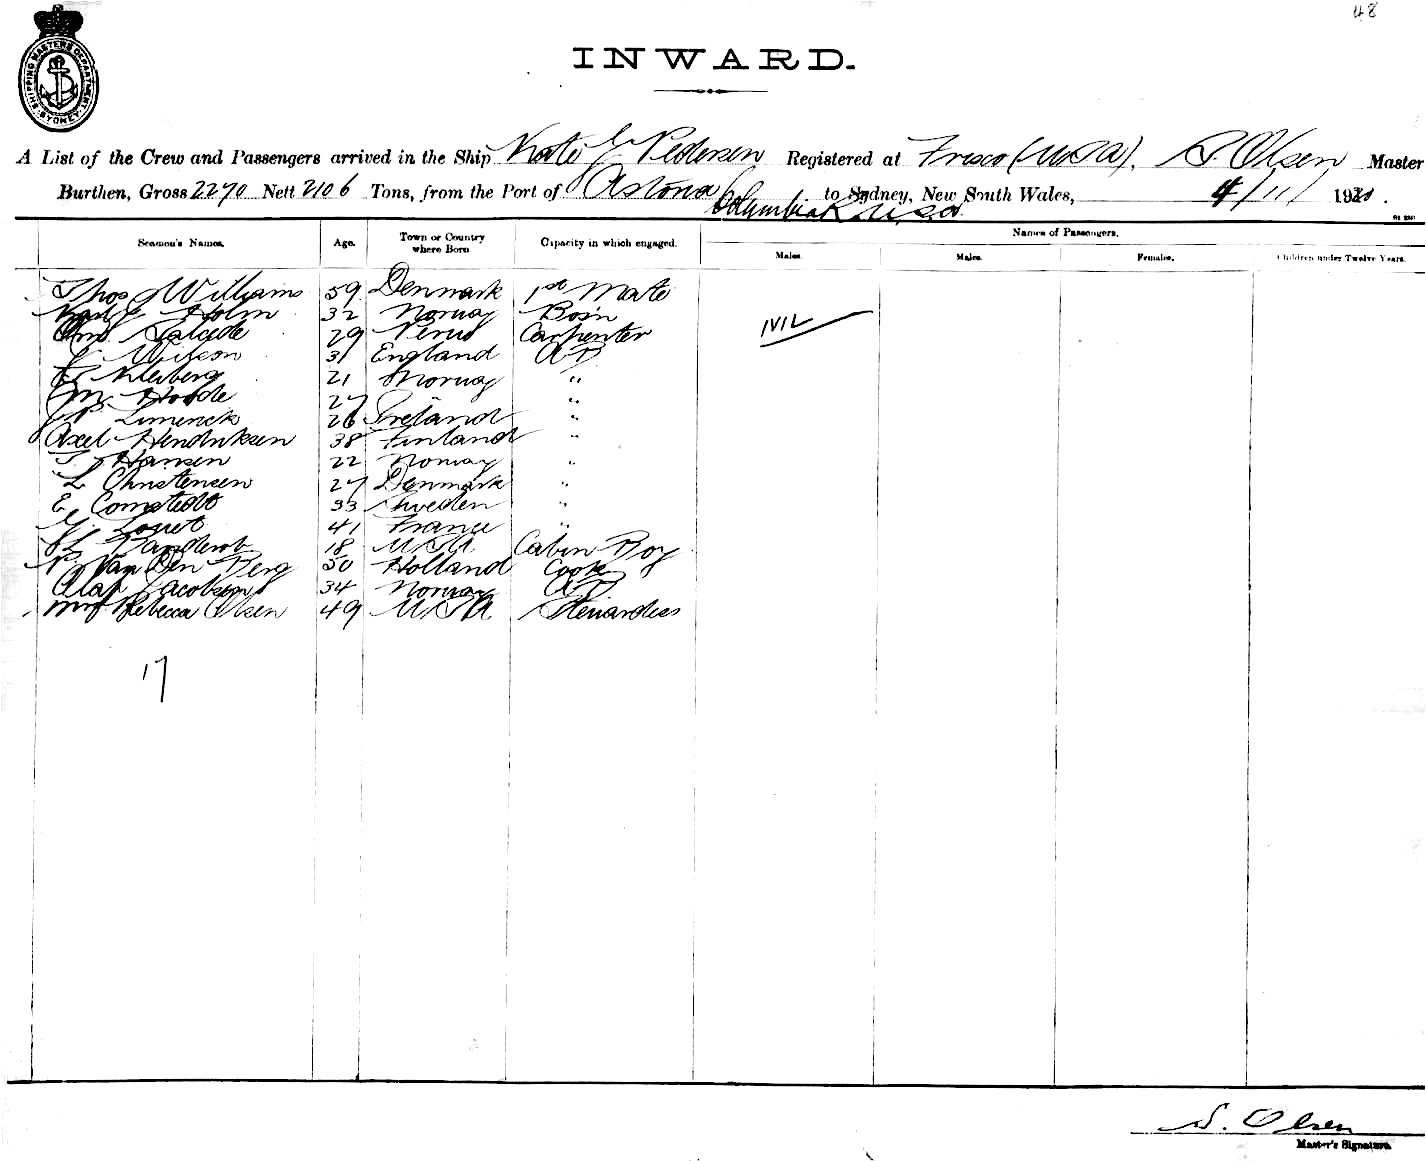 48
SHIPPING MASTERS DEPARTMENT SYDNEY
INWARD.
A List of the Crew and Passengers arrived in the Ship Kate G Pedersen Registered at Frisco (USA), S. Olsen Master
Burthen, Gross 2270 Nett 2106 Tons, from the Port of Astoria Columbia R. U.S.A to Sydney, New South Wales, 4/11/1920.
Seamen's Names. Age. Town or Country where Born Capacity in which engaged. Names of Passengers.
Males. Males. Females. Children under Twelve Years.
Thos Williams 59 Denmark 1st Mate
Holm 32 Norway Bosn
Salcede 29 Peru Carpenter
Wilson 31 England AB
21 Norway "
M. Hoode 27 "
P. Limerick 26 Ireland "
Axel Hendriksen 38 Finland "
Hansen 22 Norway "
L Christensen 27 Denmark "
E Comstedt 33 Sweden "
Louet 41 France "
18 USA Cabin Boy
P. Van Den Berg 50 Holland Cook
Olaf Jacobsen 34 Norway AB
Mrs Rebecca Olsen 49 USA Stewardess
NIL
17
S. Olsen
Master's Signature.